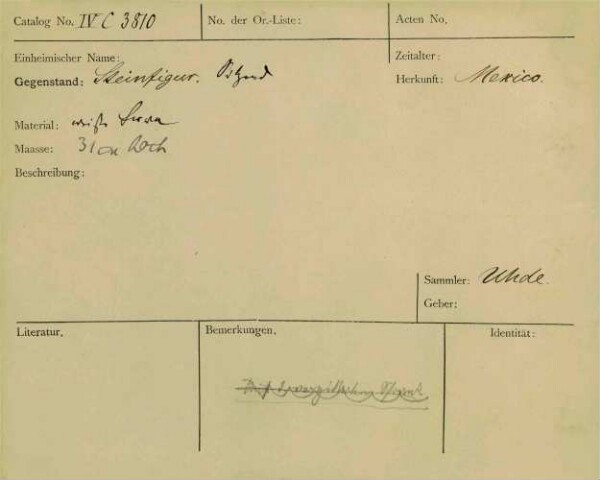 Catalog No. IV C 3810
No. der Or.-Liste:
Acten No.
Einheimischer Name:
Zeitalter:
Gegenstand: Steinfigur. Sitzend
Herkunft: Mexico.
Material: weiße Lava
Maasse: 31 cm hoch
Beschreibung:
Sammler: Uhde.
Geber:
Literatur.
Bemerkungen.
Identität: